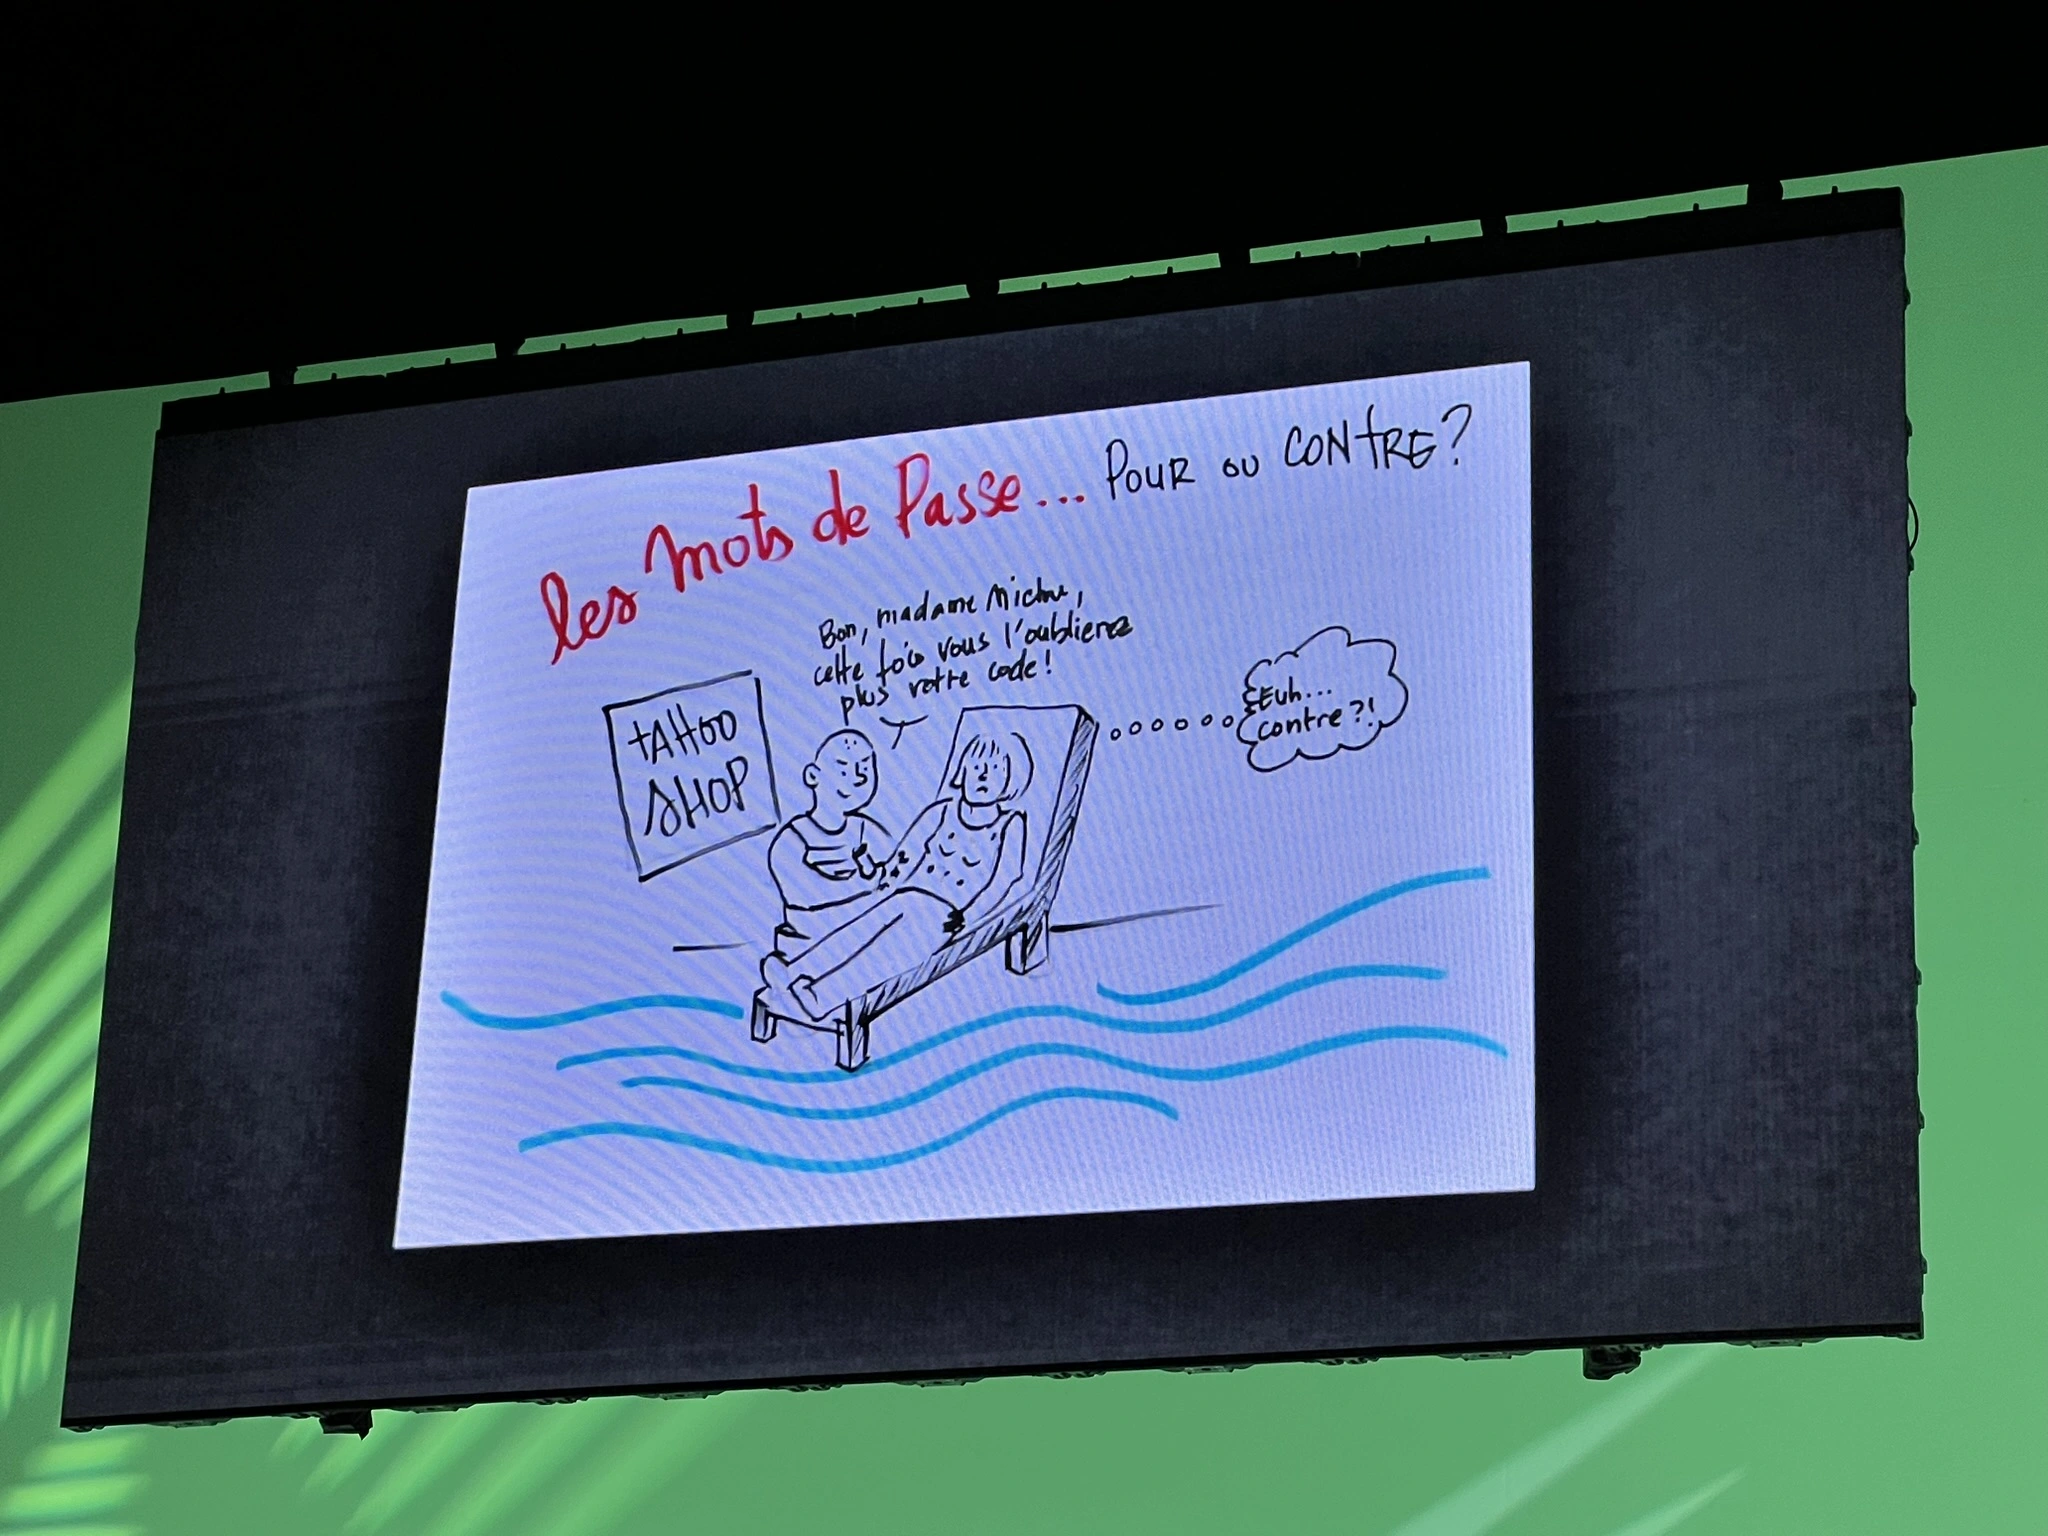 les mots de Passe... POUR OU CONTRE?
Bon, madame Michu,
cette fois vous l'oublierez
plus votre code!
TATTOO
SHOP
Euh...
contre?!